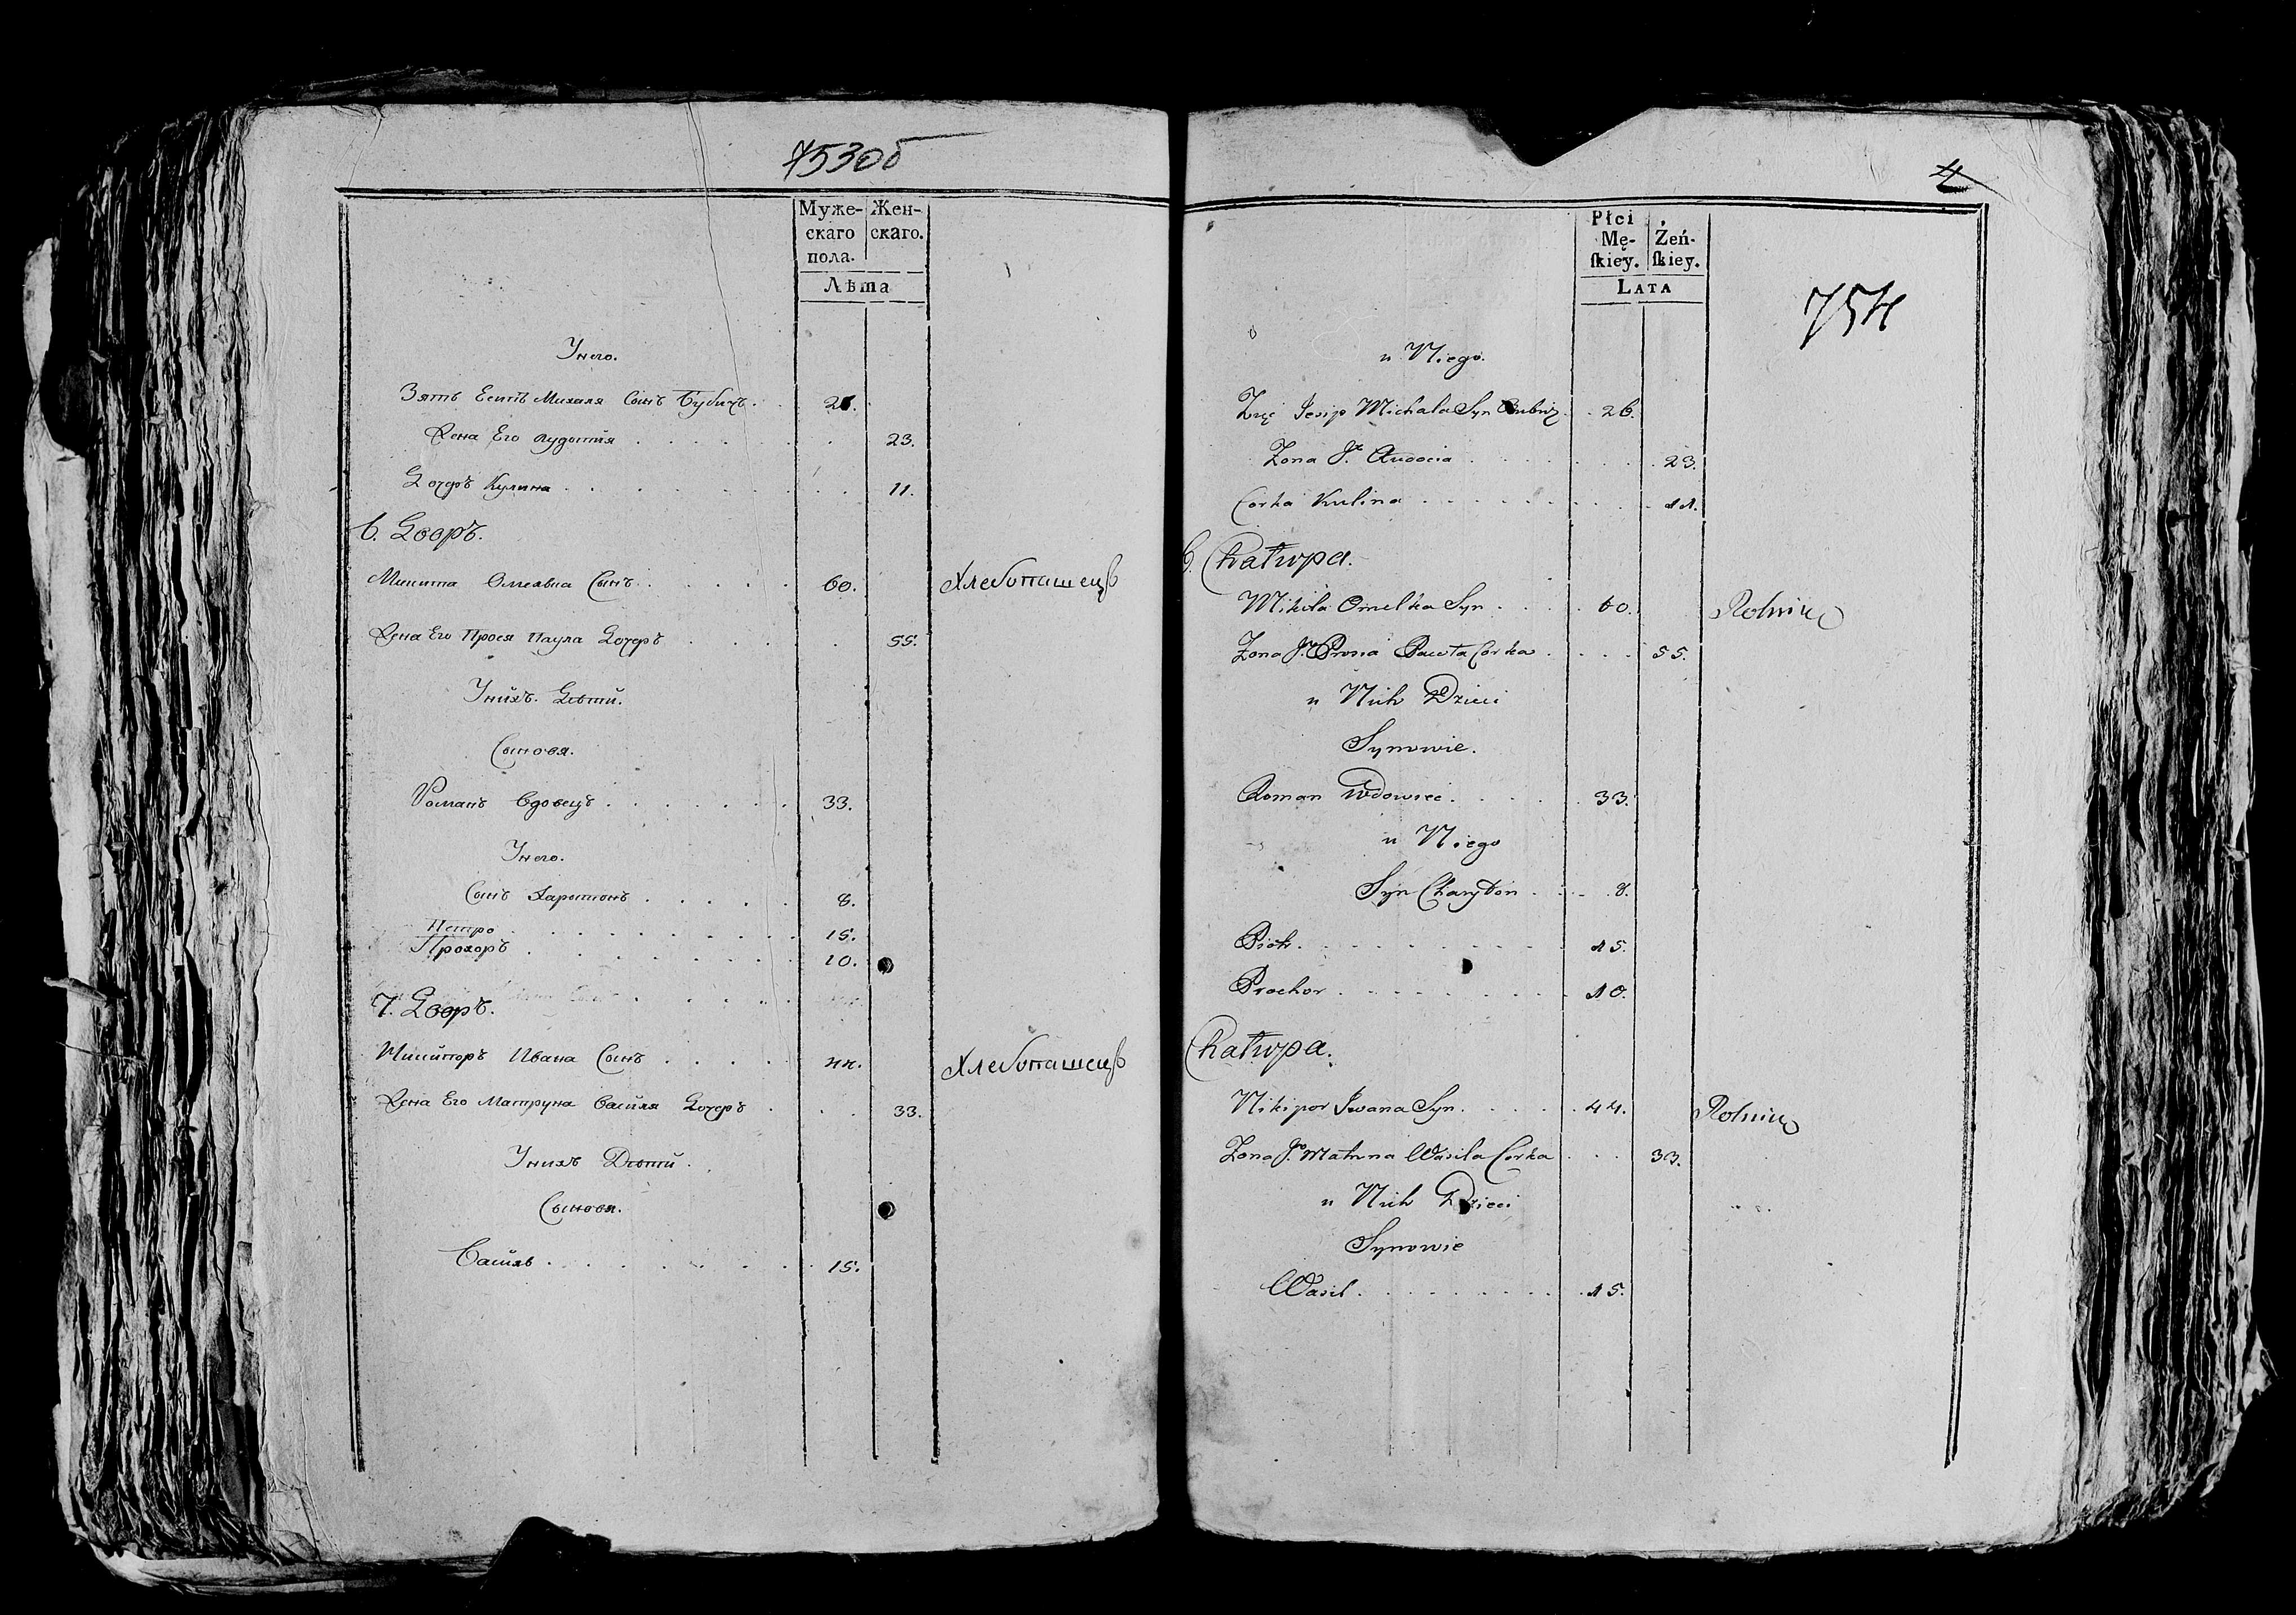 753об
Муже- Жен-
скаго скаго.
пола.
Лѣта
Унего.
Зять Есипъ Михала Сынъ Бубичъ . . 26.
Жена Его Аудотия . . . . . . 23.
Дочръ Кулина . . . . . . . . 11.
6. Дворъ.
Микита Омелька Сынъ . . . . . 60. Хлебопашецъ
Жена Его Прося Паула Дочеръ . . . 55.
Унихъ Дѣтй.
Сыновя.
Романъ Вдовецъ . . . . . . 33.
Унего.
Сынъ Харитонъ . . . . . 8.
Петро . . . . . . . . . 15.
Прохоръ . . . . . . . . 10.
7. Дворъ.
Никипоръ Ивана Сынъ . . . . 44. Хлебопашецъ
Жена Его Матруна Василя Дочеръ . . . 33.
Унихъ Дѣтй.
Сыновя.
Василь . . . . . . . . 15.
4
754
Płci
Mę- Żeń-
ſkiey. ſkiey.
LATA
u Niego.
Zięć Jesip Michala Syn Bubicz . . 26.
Zona Jº Audocia . . . . . . . 23.
Corka Kulina . . . . . . . . 11.
6. Chałupa.
Mikita Omelka Syn . . . . 60. Rolnik
Zona Jº Prosia Pawła Corka . . . . 55.
u Nich Dzieci
Synowie.
Roman Wdowiec . . . . . 33.
u Niego
Syn Charyton . . . 8.
Piotr . . . . . . . . . . 15.
Prochor . . . . . . . . . 10.
Chałupa.
Nikipor Jwana Syn . . . . . 44. Rolnik
Zona Jº Matruna Wasila Corka . . . 33.
u Nich Dzieci
Synowie
Wasil . . . . . . . . . 15.